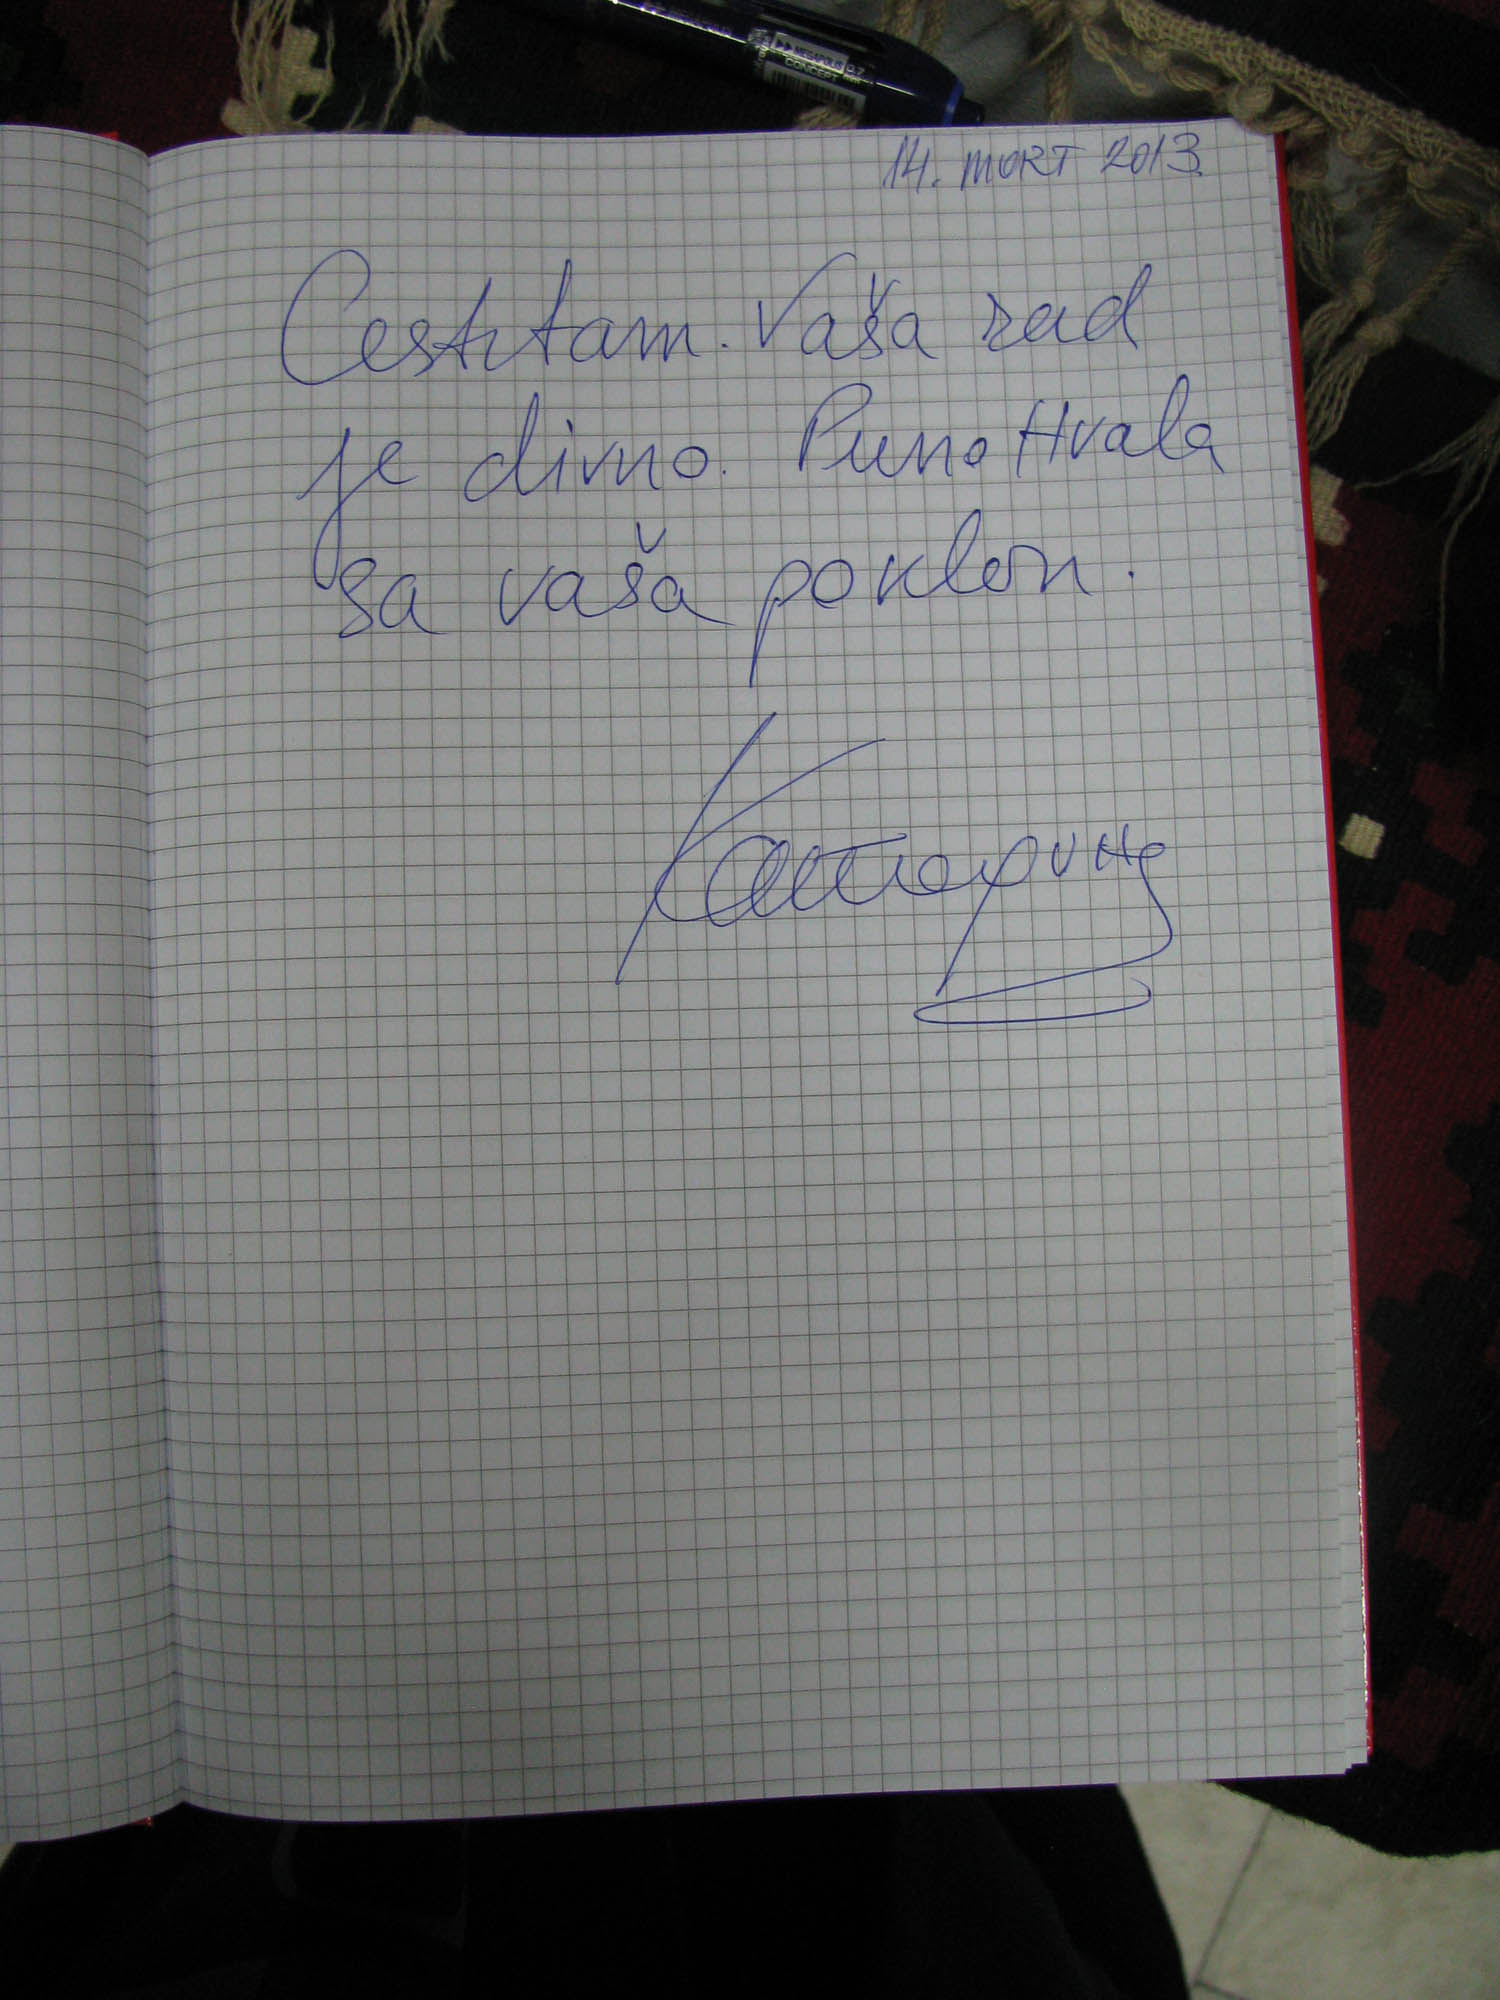 MEGAPOLIS 0.7
CONCEPT
14. MART 2013.
Cestitam. Vaša rad
je divno. Puno Hvala
za vaša poklon.
Катарина